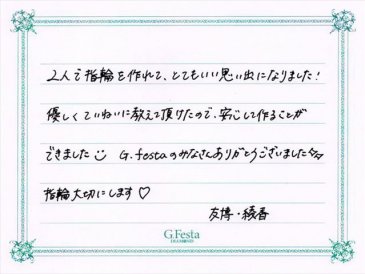 2人で指輪を作れて、とてもいい思い出になりました!
優しくていねいに教えて頂けたので、安心して作ることが
できました☺ G.festaのみなさんありがとうございました☆☆
指輪大切にします♡
友博・綾香
G.Festa
DIAMOND